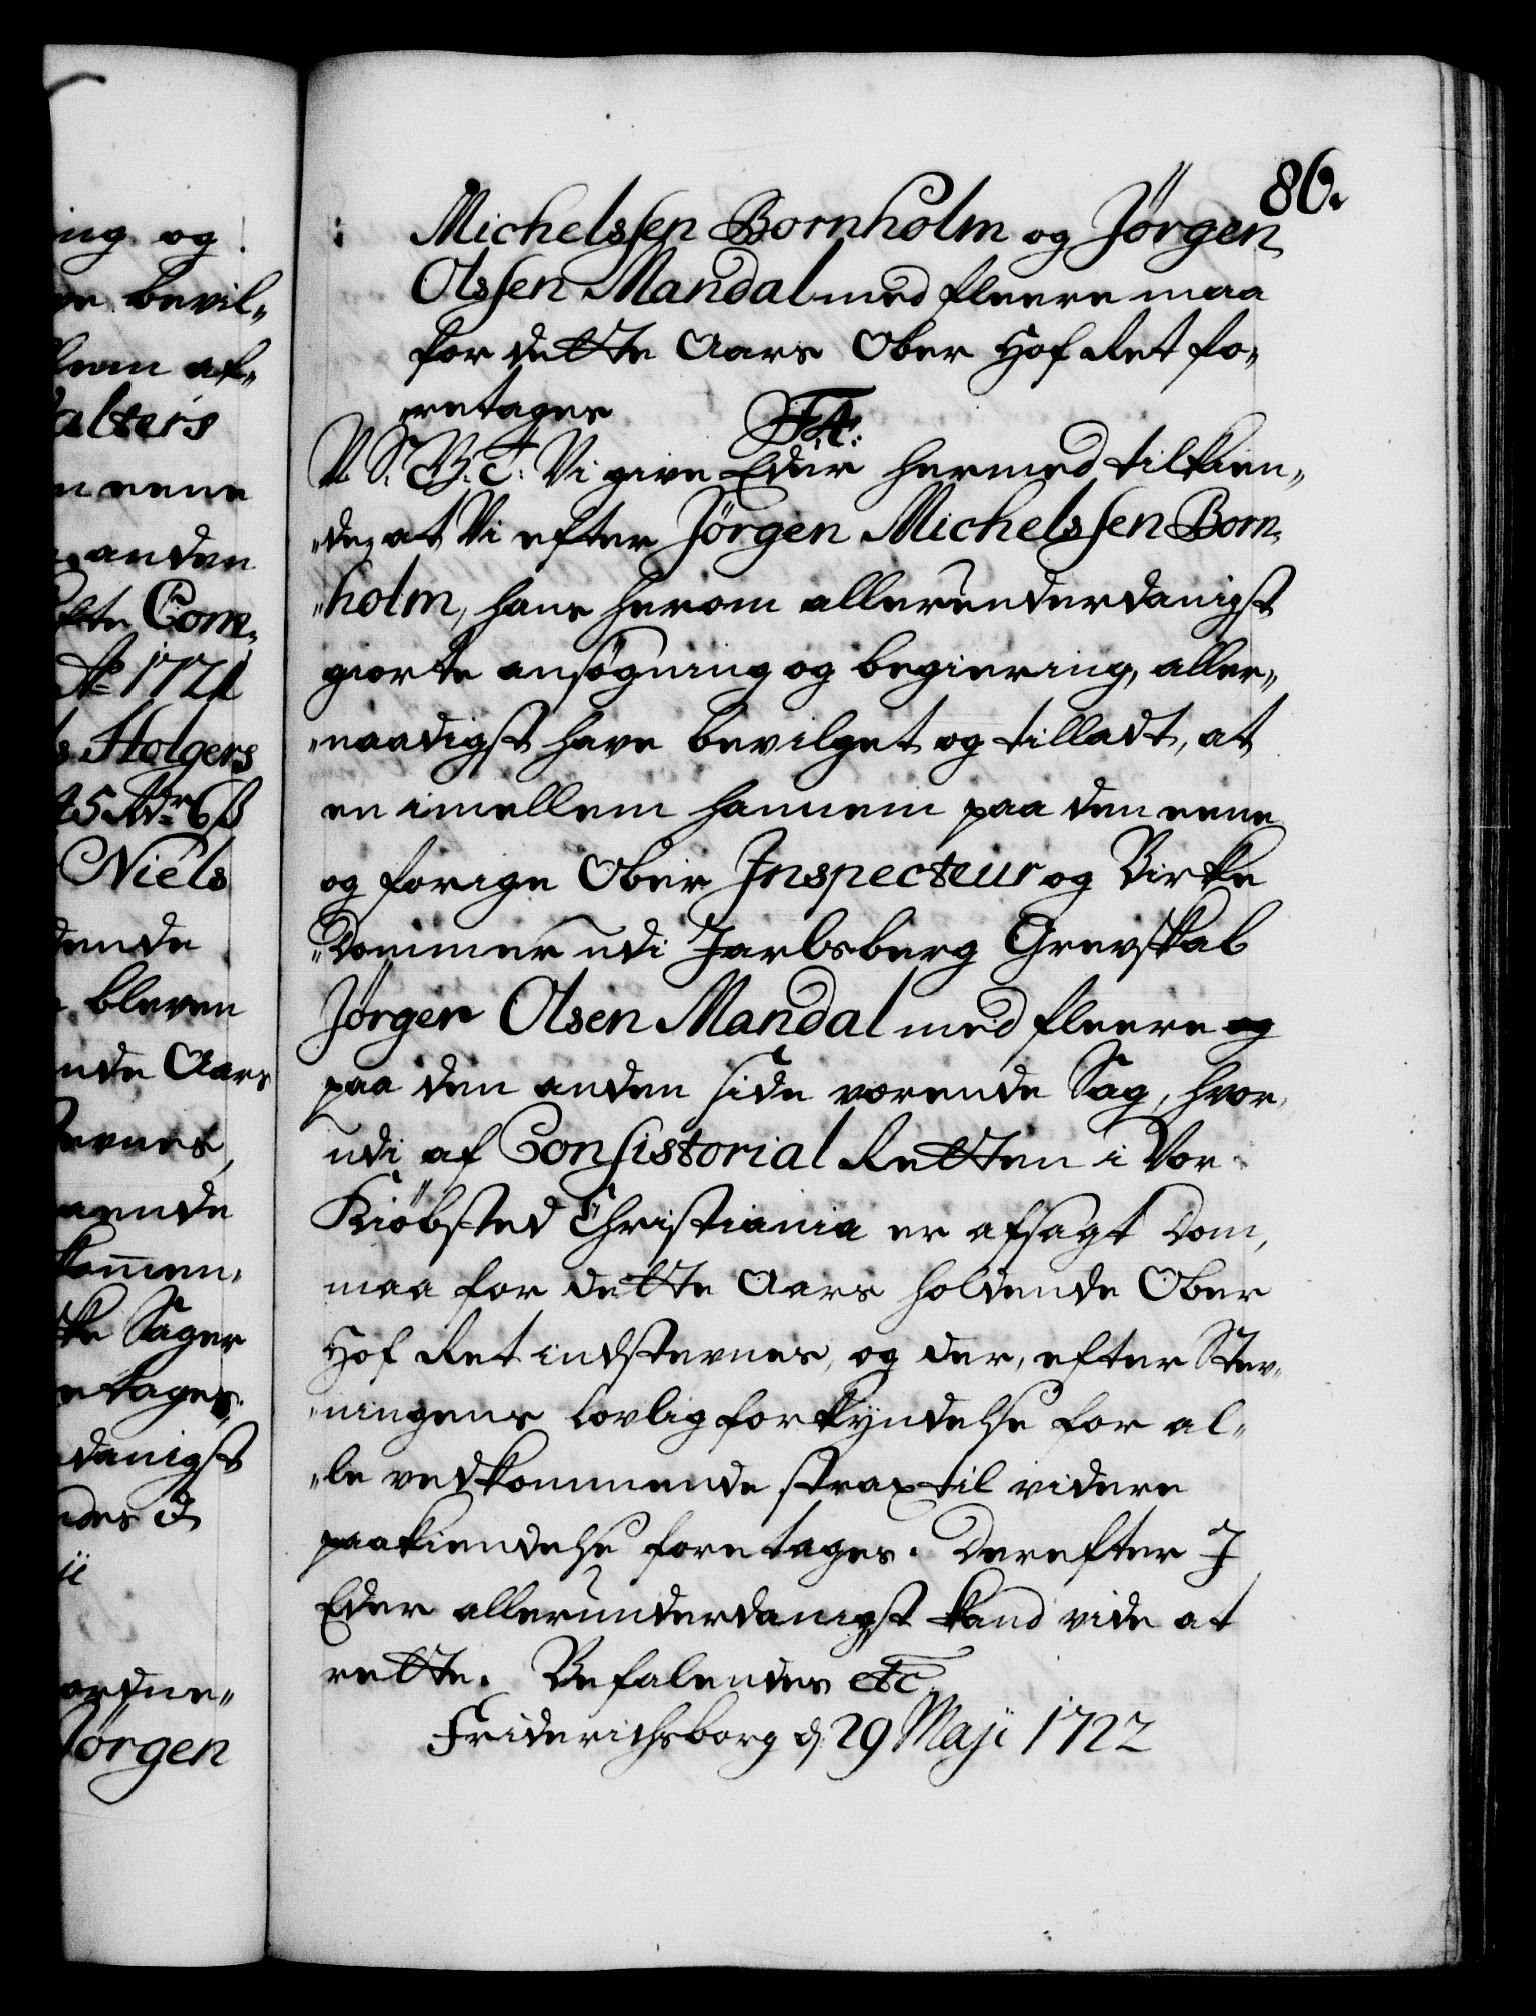 ing og
ve bevil„
lem af„
alters
n eene
anden
Com„
Aō 1721
s Holgers
45 Rdr 6 ß
Niels
dende
bleven
nde Aars
evnes,
aende
kommen„
ke Sager
etages.
danigst
ordne„
Jørgen
86.
Michelssen Bornholm og Jørgen
Olssen Mandal med fleere maa
for dette Aars Ober Hof Ret fo„
retages
F4:
V. S. G. T: Vi give Eder hermed tilkien„
„de, at Vi efter Jørgen Michelssen Born„
„holm, hans herom allerunderdanigst
giorte ansøgning og begiering, aller„
„naadigst have bevilget og tilladt, at
en imellem hannem paa den eene
og forige Ober Inspecteur og Birke
„Dommer udi Jarlsberg Grevskab
Jørgen Olsen Mandal med fleere og
paa den anden side værende Sag, hvor„
udi af Consistorial Retten i Vor
Kiøbsted Christiania er afsagt Dom,
maa for dette Aars holdende Ober
Hof Ret indstevnes, og der, efter Stev„
„ningens lovlig forkyndelse for al„
„le vedkommende strax til videre
paakiendelse foretages. Derefter I
Eder allerunderdanigst kand vide at
rette. Befalendes etc
Friderichsborg d. 29 Maji 1722